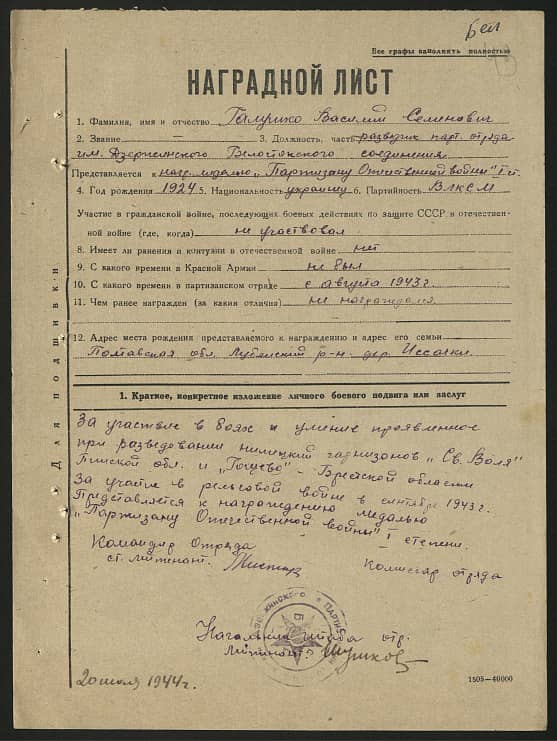 Бел
Все графы заполнять полностью
НАГРАДНОЙ ЛИСТ
1. Фамилия, имя и отчество Галушко Василий Семенович
2. Звание — 3. Должность, часть разведчик парт. отряда
им. Дзержинского Белостокского соединения
Представляется к нагр. медалью „Партизану Отечественной войны" I ст.
4. Год рождения 1924 5. Национальность украинц 6. Партийность ВЛКСМ
Участие в гражданской войне, последующих боевых действиях по защите СССР и отечествен-
ной войне (где, когда) не участвовал
8. Имеет ли ранения и контузии в отечественной войне нет
9. С какого времени в Красной Армии не был
10. С какого времени в партизанском отряде с августа 1943 г.
11. Чем ранее награжден (за какие отличия) не награждался
12. Адрес места рождения представляемого к награждению и адрес его семьи
Полтавская обл. Лубянский р-н. дер. Иссачки
Для подшивки
1. Краткое, конкретное изложение личного боевого подвига или заслуг
За участие в боях и умение проявленное
при разведовании нимецкий гарнизонов „Св. Воля"
Пинской обл. и - Брестской области
За участие в рельсовой войне в сентябре 1943 г.
Представляется к награждению медалью
„Партизану Отечественной войны" I степени.
Командир Отряда
ст. лейтенант.
Комиссар отряда
Начальник штаба отр.
лейтенант
20 июля 1944 г.
1505—40000